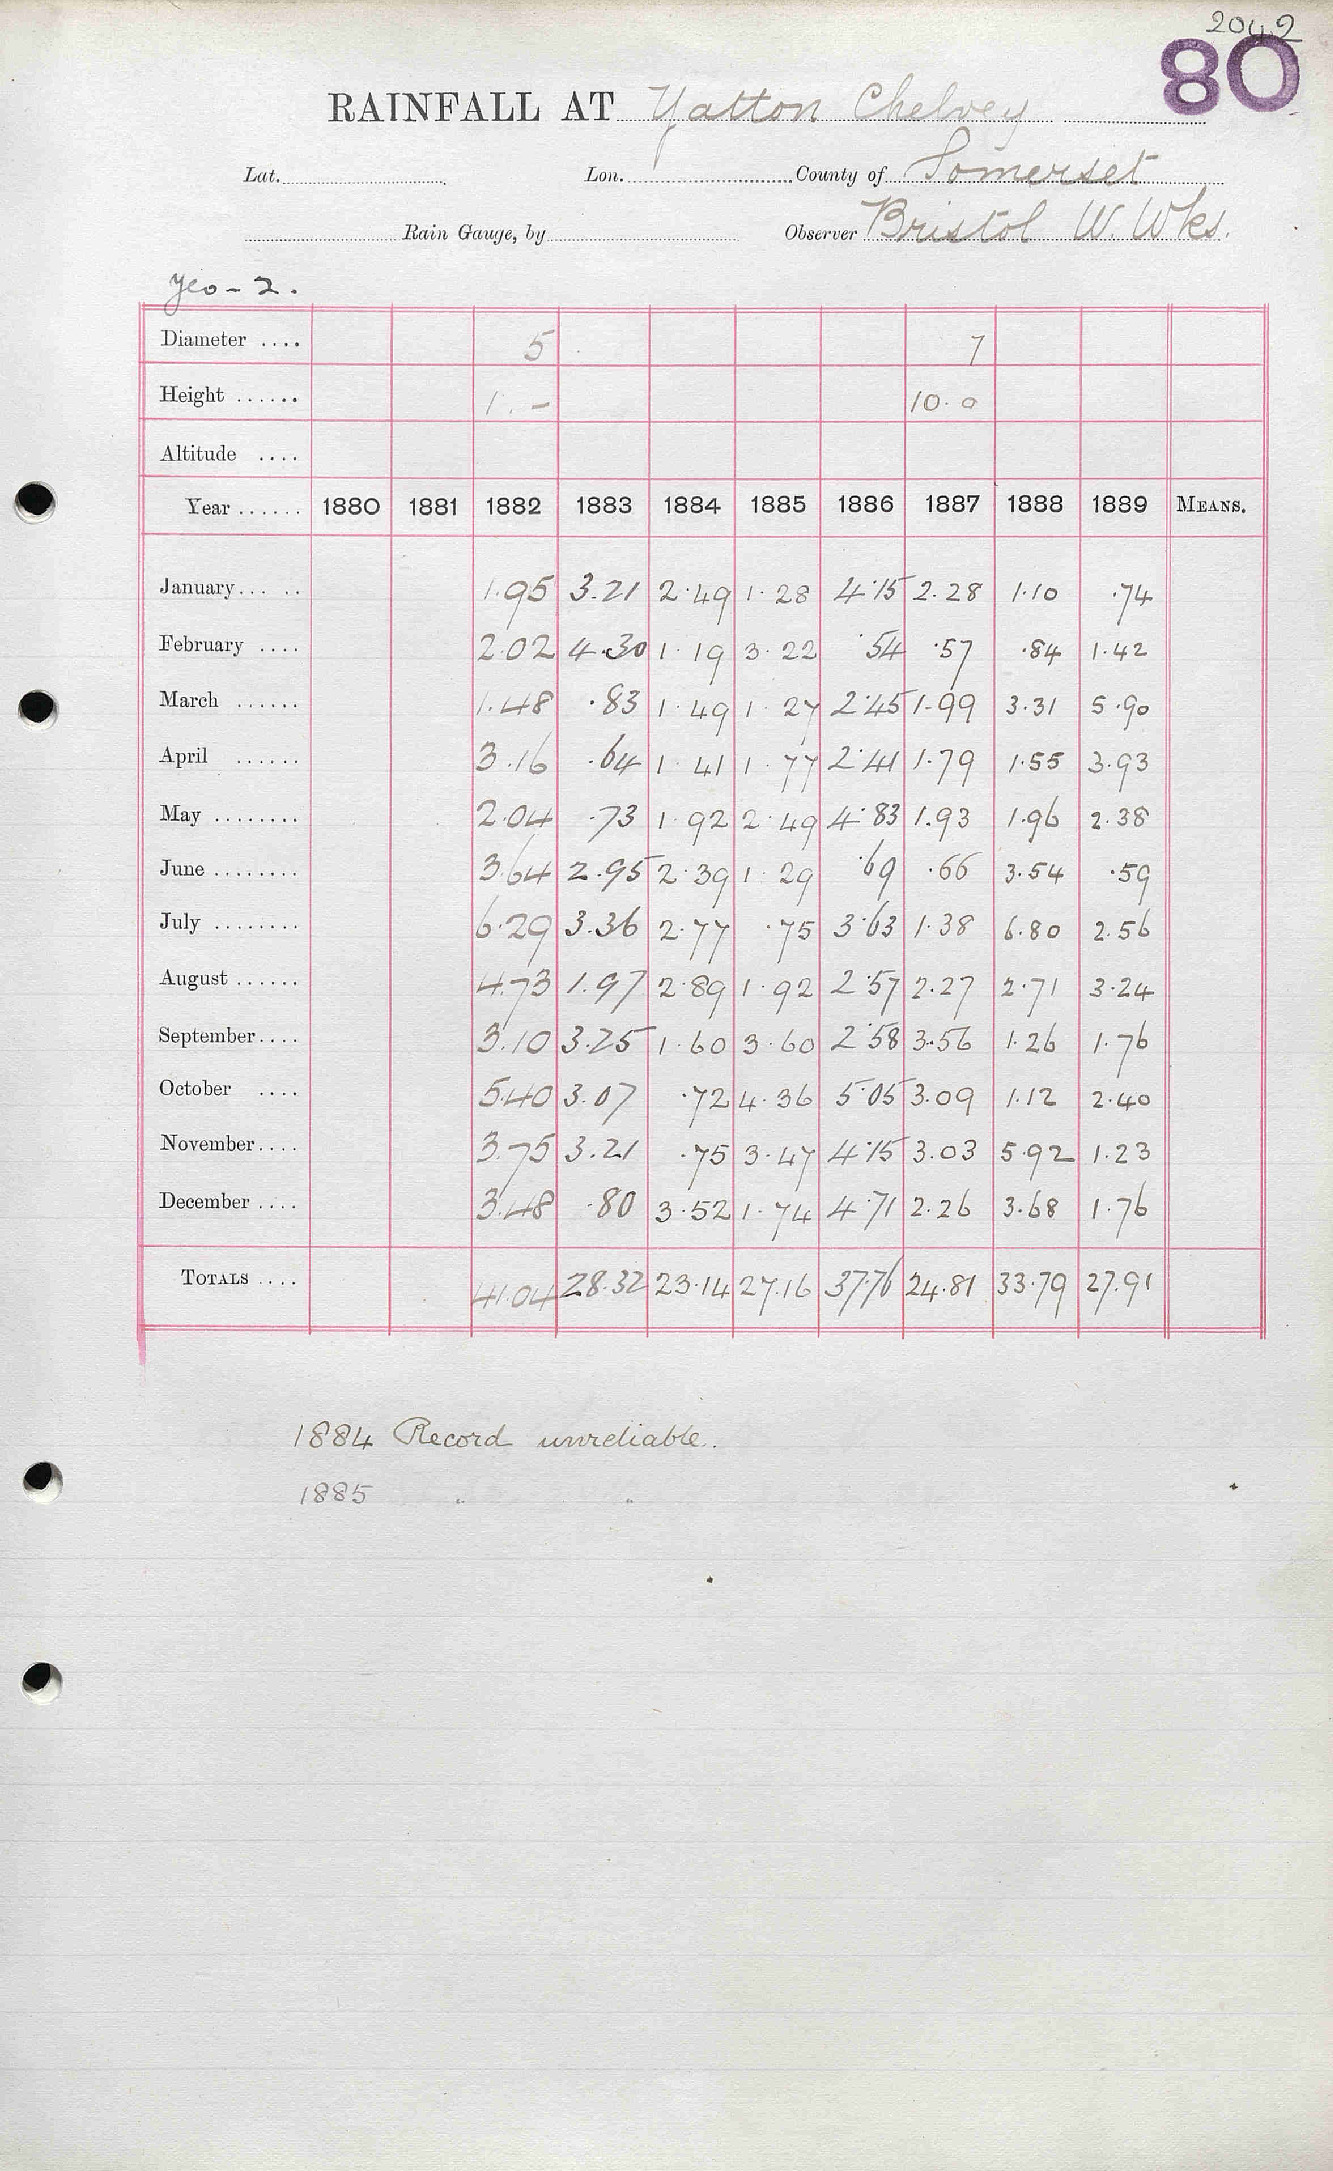 2042
80
RAINFALL AT Yatton Chelvey
Lat. Lon. County of Somerset
Rain Gauge, by Observer Bristol W. Wks.
Yeo - 2.
Diameter .... 5 7
Height ...... 1. - 10. 0
Altitude ....
Year ...... 1880 1881 1882 1883 1884 1885 1886 1887 1888 1889 MEANS.
January... .. 1.95 3.21 2.49 1.28 4.15 2.28 1.10 .74
February .... 2.02 4.30 1.19 3.22 .54 .57 .84 1.42
March ...... 1.48 .83 1.49 1.27 2.45 1.99 3.31 5.90
April ...... 3.16 .64 1.41 1.77 2.41 1.79 1.55 3.93
May ........ 2.04 .73 1.92 2.49 4.83 1.93 1.96 2.38
June ........ 3.64 2.95 2.39 1.29 .69 .66 3.54 .59
July ........ 6.29 3.36 2.77 .75 3.63 1.38 6.80 2.56
August ...... 4.73 1.97 2.89 1.92 2.57 2.27 2.71 3.24
September.... 3.10 3.25 1.60 3.60 2.58 3.56 1.26 1.76
October .... 5.40 3.07 .72 4.36 5.05 3.09 1.12 2.40
November.... 3.75 3.21 .75 3.47 4.15 3.03 5.92 1.23
December .... 3.48 .80 3.52 1.74 4.71 2.26 3.68 1.76
TOTALS .... 41.04 28.32 23.14 27.16 37.76 24.81 33.79 27.91
1884 Record unreliable.
1885 " "